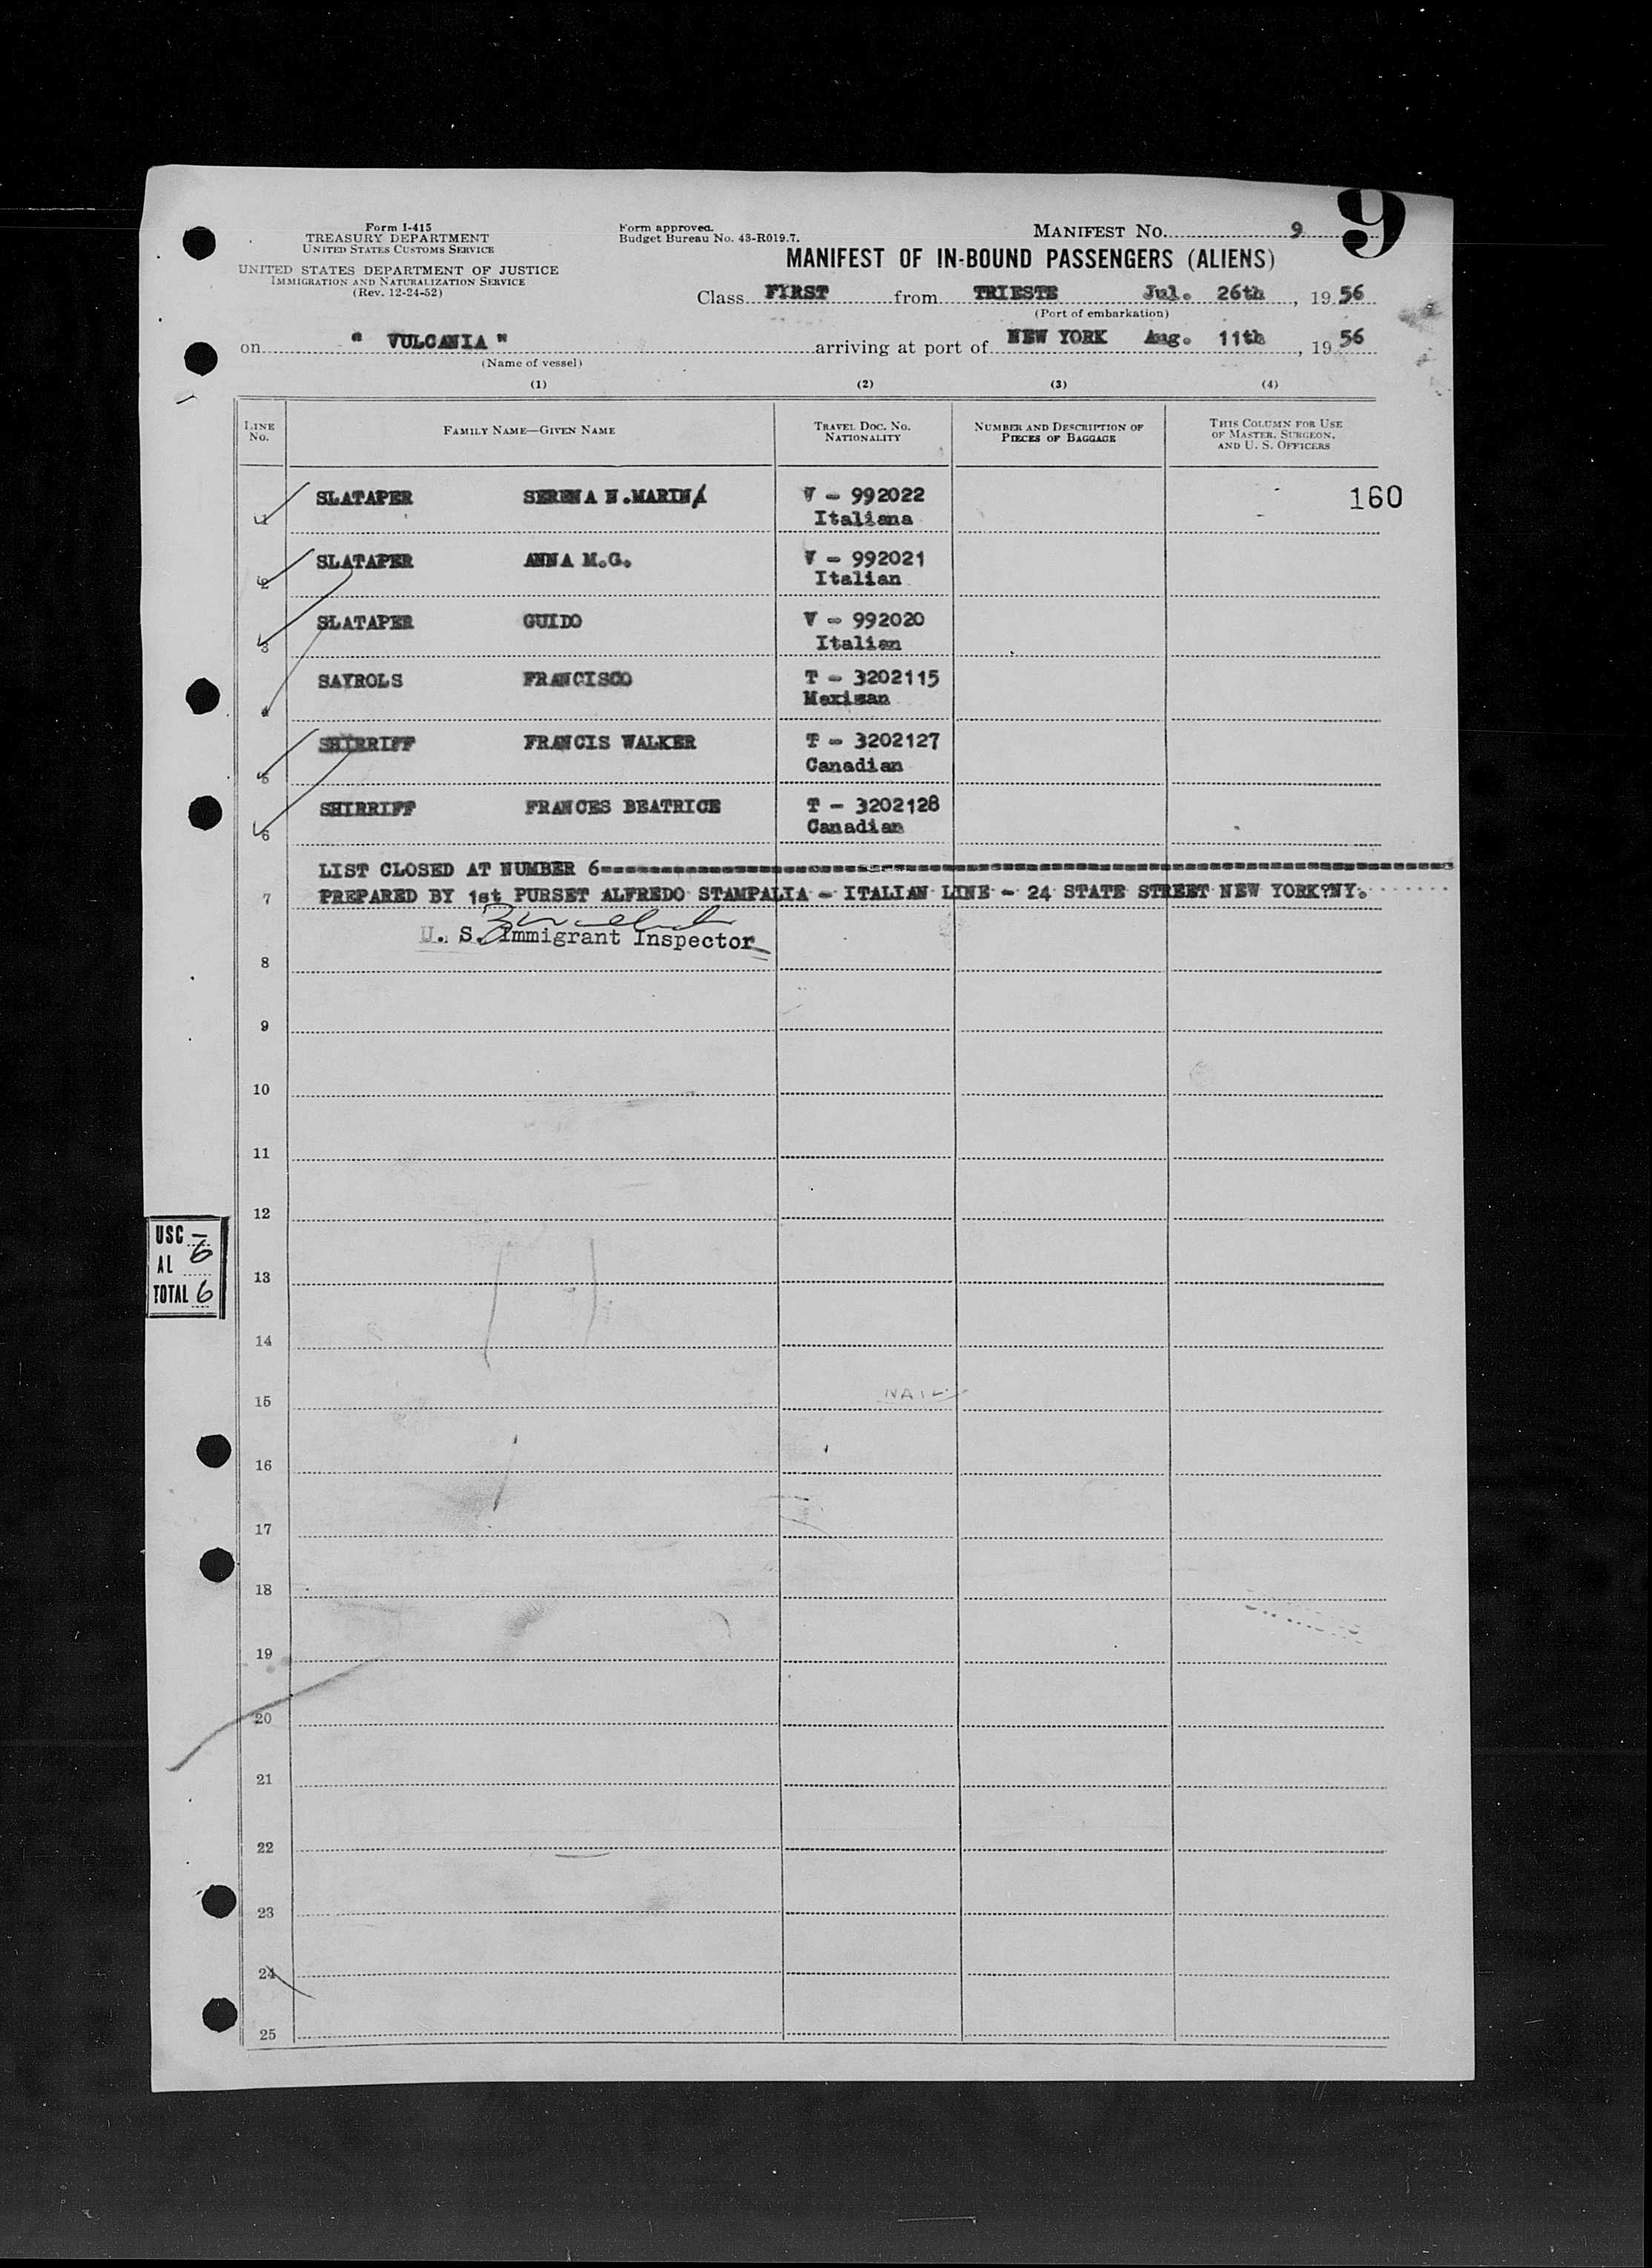 9
Form I-415
TREASURY DEPARTMENT
UNITED STATES CUSTOMS SERVICE
UNITED STATES DEPARTMENT OF JUSTICE
IMMIGRATION AND NATURALIZATION SERVICE
(Rev. 12-24-52)
Form approved.
Budget Bureau No. 43-R019.7.
MANIFEST No. 9
MANIFEST OF IN-BOUND PASSENGERS (ALIENS)
Class FIRST from TRIESTE Jul. 26th, 1956
(Port of embarkation)
on " VULCANIA " arriving at port of NEW YORK Aug. 11th, 1956
(Name of vessel)
(1) (2) (3) (4)
LINE No. FAMILY NAME—GIVEN NAME TRAVEL DOC. No. NATIONALITY NUMBER AND DESCRIPTION OF PIECES OF BAGGAGE THIS COLUMN FOR USE OF MASTER, SURGEON, AND U. S. OFFICERS
1 SLATAPER SERENA N.MARINA V - 992022 160
Italiana
2 SLATAPER ANNA M.G. V - 992021
Italian
3 SLATAPER GUIDO V - 992020
Italian
4 SAYROLS FRANCISCO T - 3202115
Meximan
5 SHIRRIFF FRANCIS WALKER T - 3202127
Canadian
6 SHIRRIFF FRANCES BEATRICE T - 3202128
Canadian
LIST CLOSED AT NUMBER 6
7 PREPARED BY 1st PURSET ALFREDO STAMPALIA - ITALIAN LINE - 24 STATE STREET NEW YORK?NY.
U. S. Immigrant Inspector
8
9
10
11
12
USC -
AL 6
TOTAL 6
13
14
15
16
17
18
19
20
21
22
23
24
25